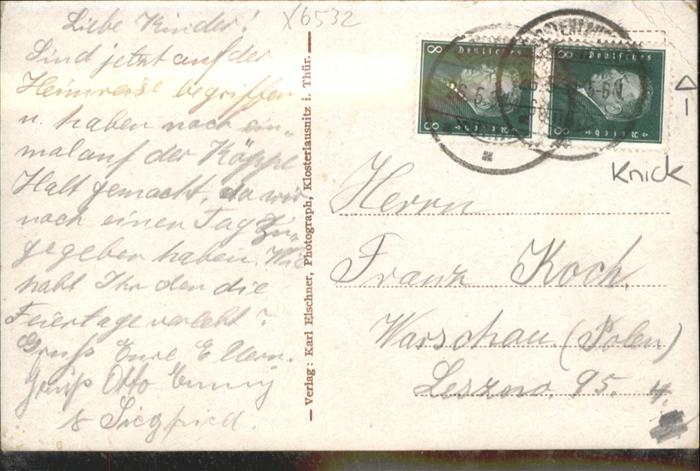 Liebe Kinder!
Sind jetzt auf der
Heimreise begriffen
u. haben noch ein-
mal auf der Köppe
Halt gemacht, da wir
noch einen Tag zu-
gegeben haben. Wie
habt Ihr den die
Feiertage verlebt?
Gruß Eure Eltern.
Gruß Otto Emmy
& Siegfried.
X6532
— Verlag: Karl Elschner, Photograph, Klosterlausnitz i. Thür. —
8 Deutsches 8
Reich
8 Deutsches 8
Reich
Knick
Herrn
Franz Koch.
Warschau (Polen)
Leszno. 95. 4.